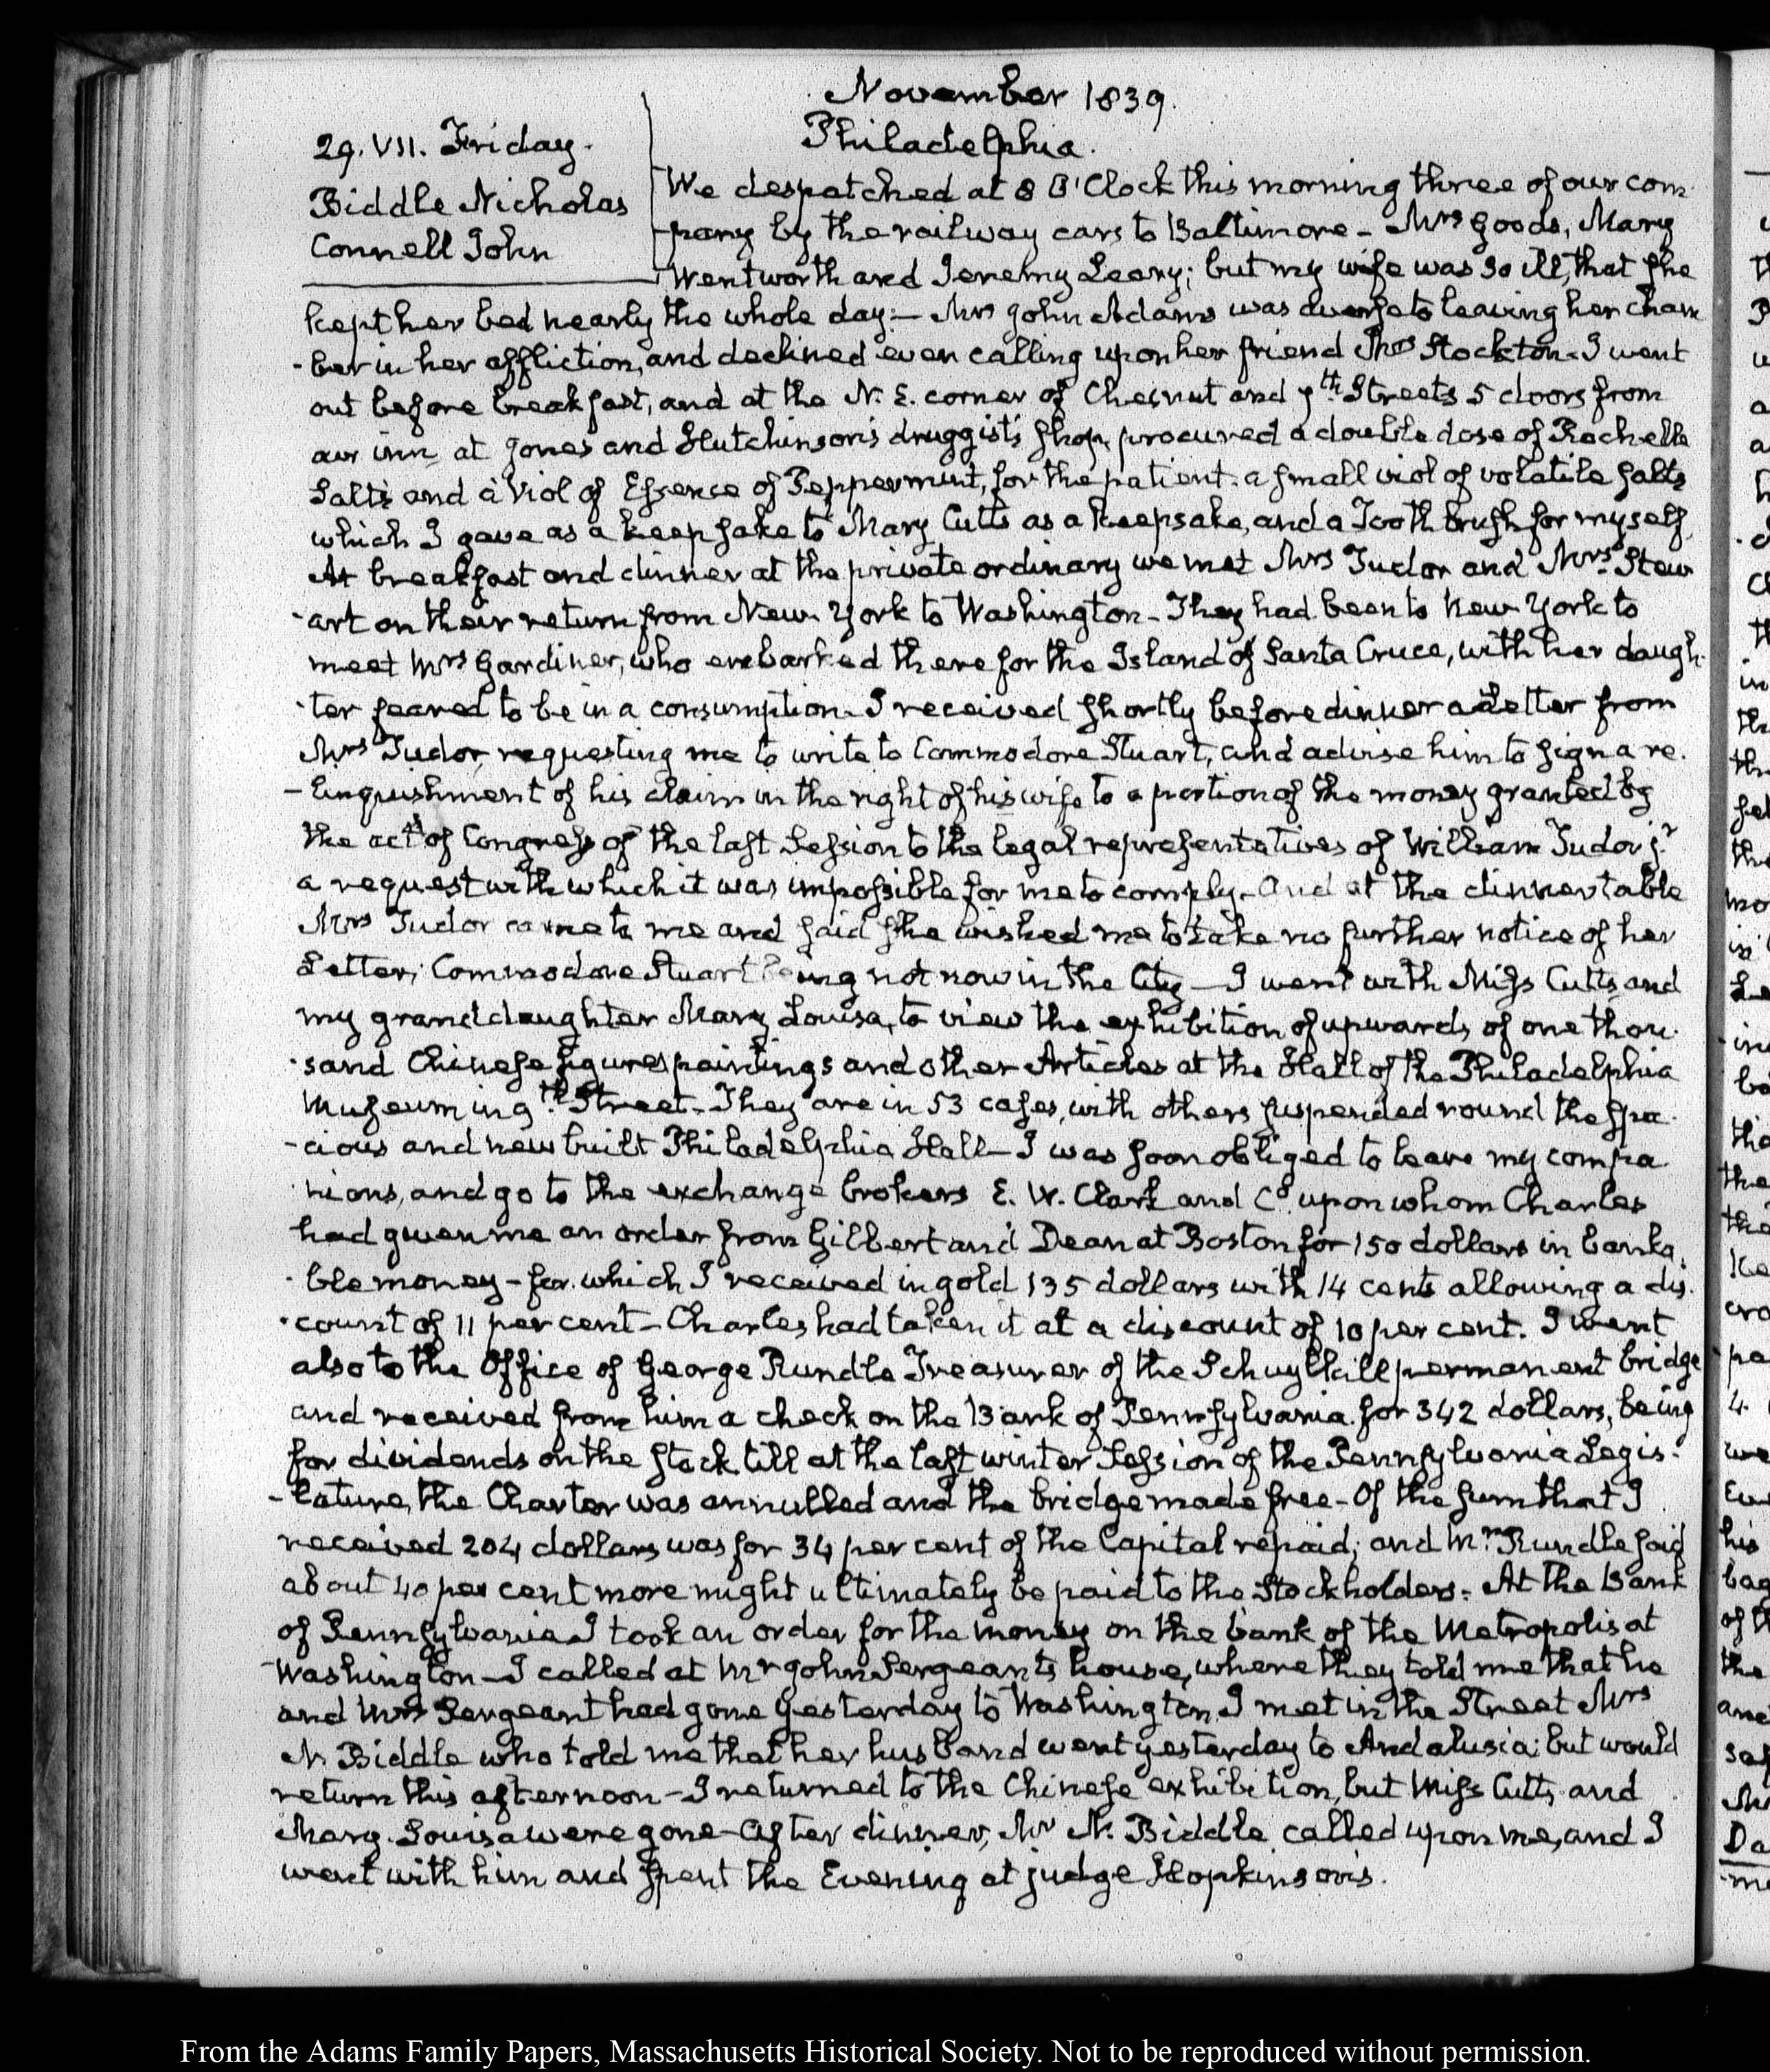 November 1839.
Philadelphia.
29. VII. Friday.
Biddle Nicholas
Connell John
We despatched at 8 O'Clock this morning three of our com-
-pany by the railway cars to Baltimore - Mrs Goods, Mary
Wentworth and Jeremy Leary; but my wife was so ill, that she
kept her bed nearly the whole day:— Mrs John Adams was averse to leaving her cham
-ber in her affliction, and declined even calling upon her friend Mrs Stockton - I went
out before breakfast, and at the N. E. corner of Chesnut and 7th Streets 5 doors from
our inn, at Jones and Hutchinson's druggist's shop, procured a double dose of Rochelle
Salts and a Viol of Essence of Peppermint, for the patient. a small viol of volatile salts
which I gave as a keepsake to Mary Cutts as a keepsake, and a Tooth brush for myself
At breakfast and dinner at the private ordinary we met Mrs Tudor and Mrs Stew
-art on their return from New-York to Washington - They had been to New-York to
meet Mrs Gardiner, who embarked there for the Island of Santa Cruce, with her daugh-
-ter feared to be in a consumption - I received shortly before dinner a Letter from
Mrs Tudor, requesting me to write to Commodore Stuart, and advise him to sign a re-
-linquishment of his claim in the right of his wife to a portion of the money granted by
the act of Congress of the last Session to the legal representatives of William Tudor jr
a request with which it was impossible for me to comply - And at the dinner table
Mrs Tudor came to me and said she wished me to take no further notice of her
Letter; Commodore Stuart being not now in the City — I went with Miss Cutts and
my granddaughter Mary Louisa, to view the exhibition of upwards of one thou-
-sand Chinese figures paintings and other Articles at the Hall of the Philadelphia
Museum in 9th Street - They are in 53 cases, with others suspended round the spa-
-cious and new built Philadelphia Hall - I was soon obliged to leave my compa-
-nions, and go to the exchange brokers E. W. Clark and Co. upon whom Charles
had given me an order from Gilbert and Dean at Boston for 150 dollars in banka-
-ble money - for which I received in gold 135 dollars with 14 cents allowing a dis-
-count of 11 per cent - Charles had taken it at a discount of 10 per cent. I went
also to the Office of George Rundle Treasurer of the Schuylkill permanent bridge
and received from him a check on the Bank of Pennsylvania for 342 dollars, being
for dividends on the stock till at the last winter Session of the Pennsylvania Legis-
-lature, the Charter was annulled and the bridge made free - Of the sum that I
received 204 dollars was for 34 per cent of the Capital repaid; and Mr Rundle said
about 40 per cent more might ultimately be paid to the Stockholders - At the Bank
of Pennsylvania I took an order for the money on the bank of the Metropolis at
Washington - I called at Mr John Sergeant's house, where they told me that he
and Mrs Sergeant had gone yesterday to Washington. I met in the Street Mrs
N. Biddle who told me that her husband went yesterday to Andalusia; but would
return this afternoon - I returned to the Chinese exhibition, but Miss Cutts and
Mary Louisa were gone - After dinner, Mr N. Biddle called upon me, and I
went with him and spent the Evening at judge Hopkinson's.
From the Adams Family Papers, Massachusetts Historical Society. Not to be reproduced without permission.